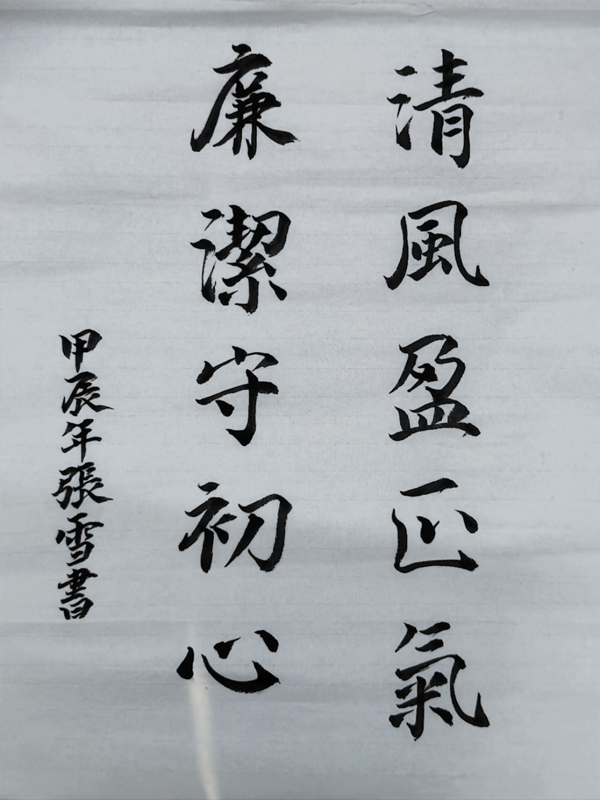 清風盈正氣
廉潔守初心
甲辰年張雪書